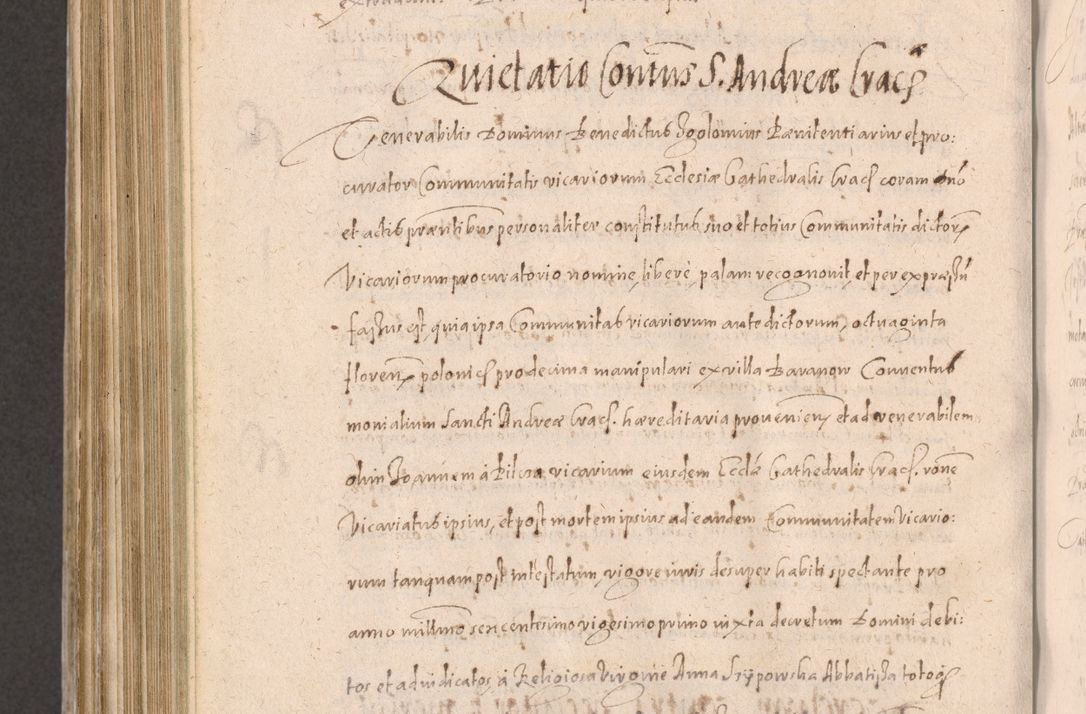 Quietatio Conũus S. Andreæ Crac̃
Venerabilis Dominus Benedictus Zgolonius Pænitentiarius et pro:
curator Communitatis vicariorum Ecclesiæ Cathedralis Crac̃ coram
et actis præñtibus personaliter constitutus suo et totius Communitatis dictoꝝ
Vicariorum procuratorio nomine, liberè palam recognovit, et per expressũ
fassus est, quia ipsa Communitas vicariorum antedictorum, octuaginta
floreñ polonic̃ pro decima manipulari ex villa Baranow Conventus
monialium Sancti Andreæ Crac̃. hæreditaria provenieñ et ad venerabilem
olim Joannem à Pilcza vicarium eiusdem Ecclæ̃ Cathedralis Crac̃. rõne
Vicariatus ipsius, et post mortem ipsius ad eandem Communitatem Vicario:
rum tanquam post intestatum, vigore iuris desuper habiti spectante pro
anno millmõ sexcentesimo vigesimo primo iuxta decretum Domini debi:
tos et adiudicatos, à Religiosa Virgine Anna Srzypowska Abbatissa totoq̃